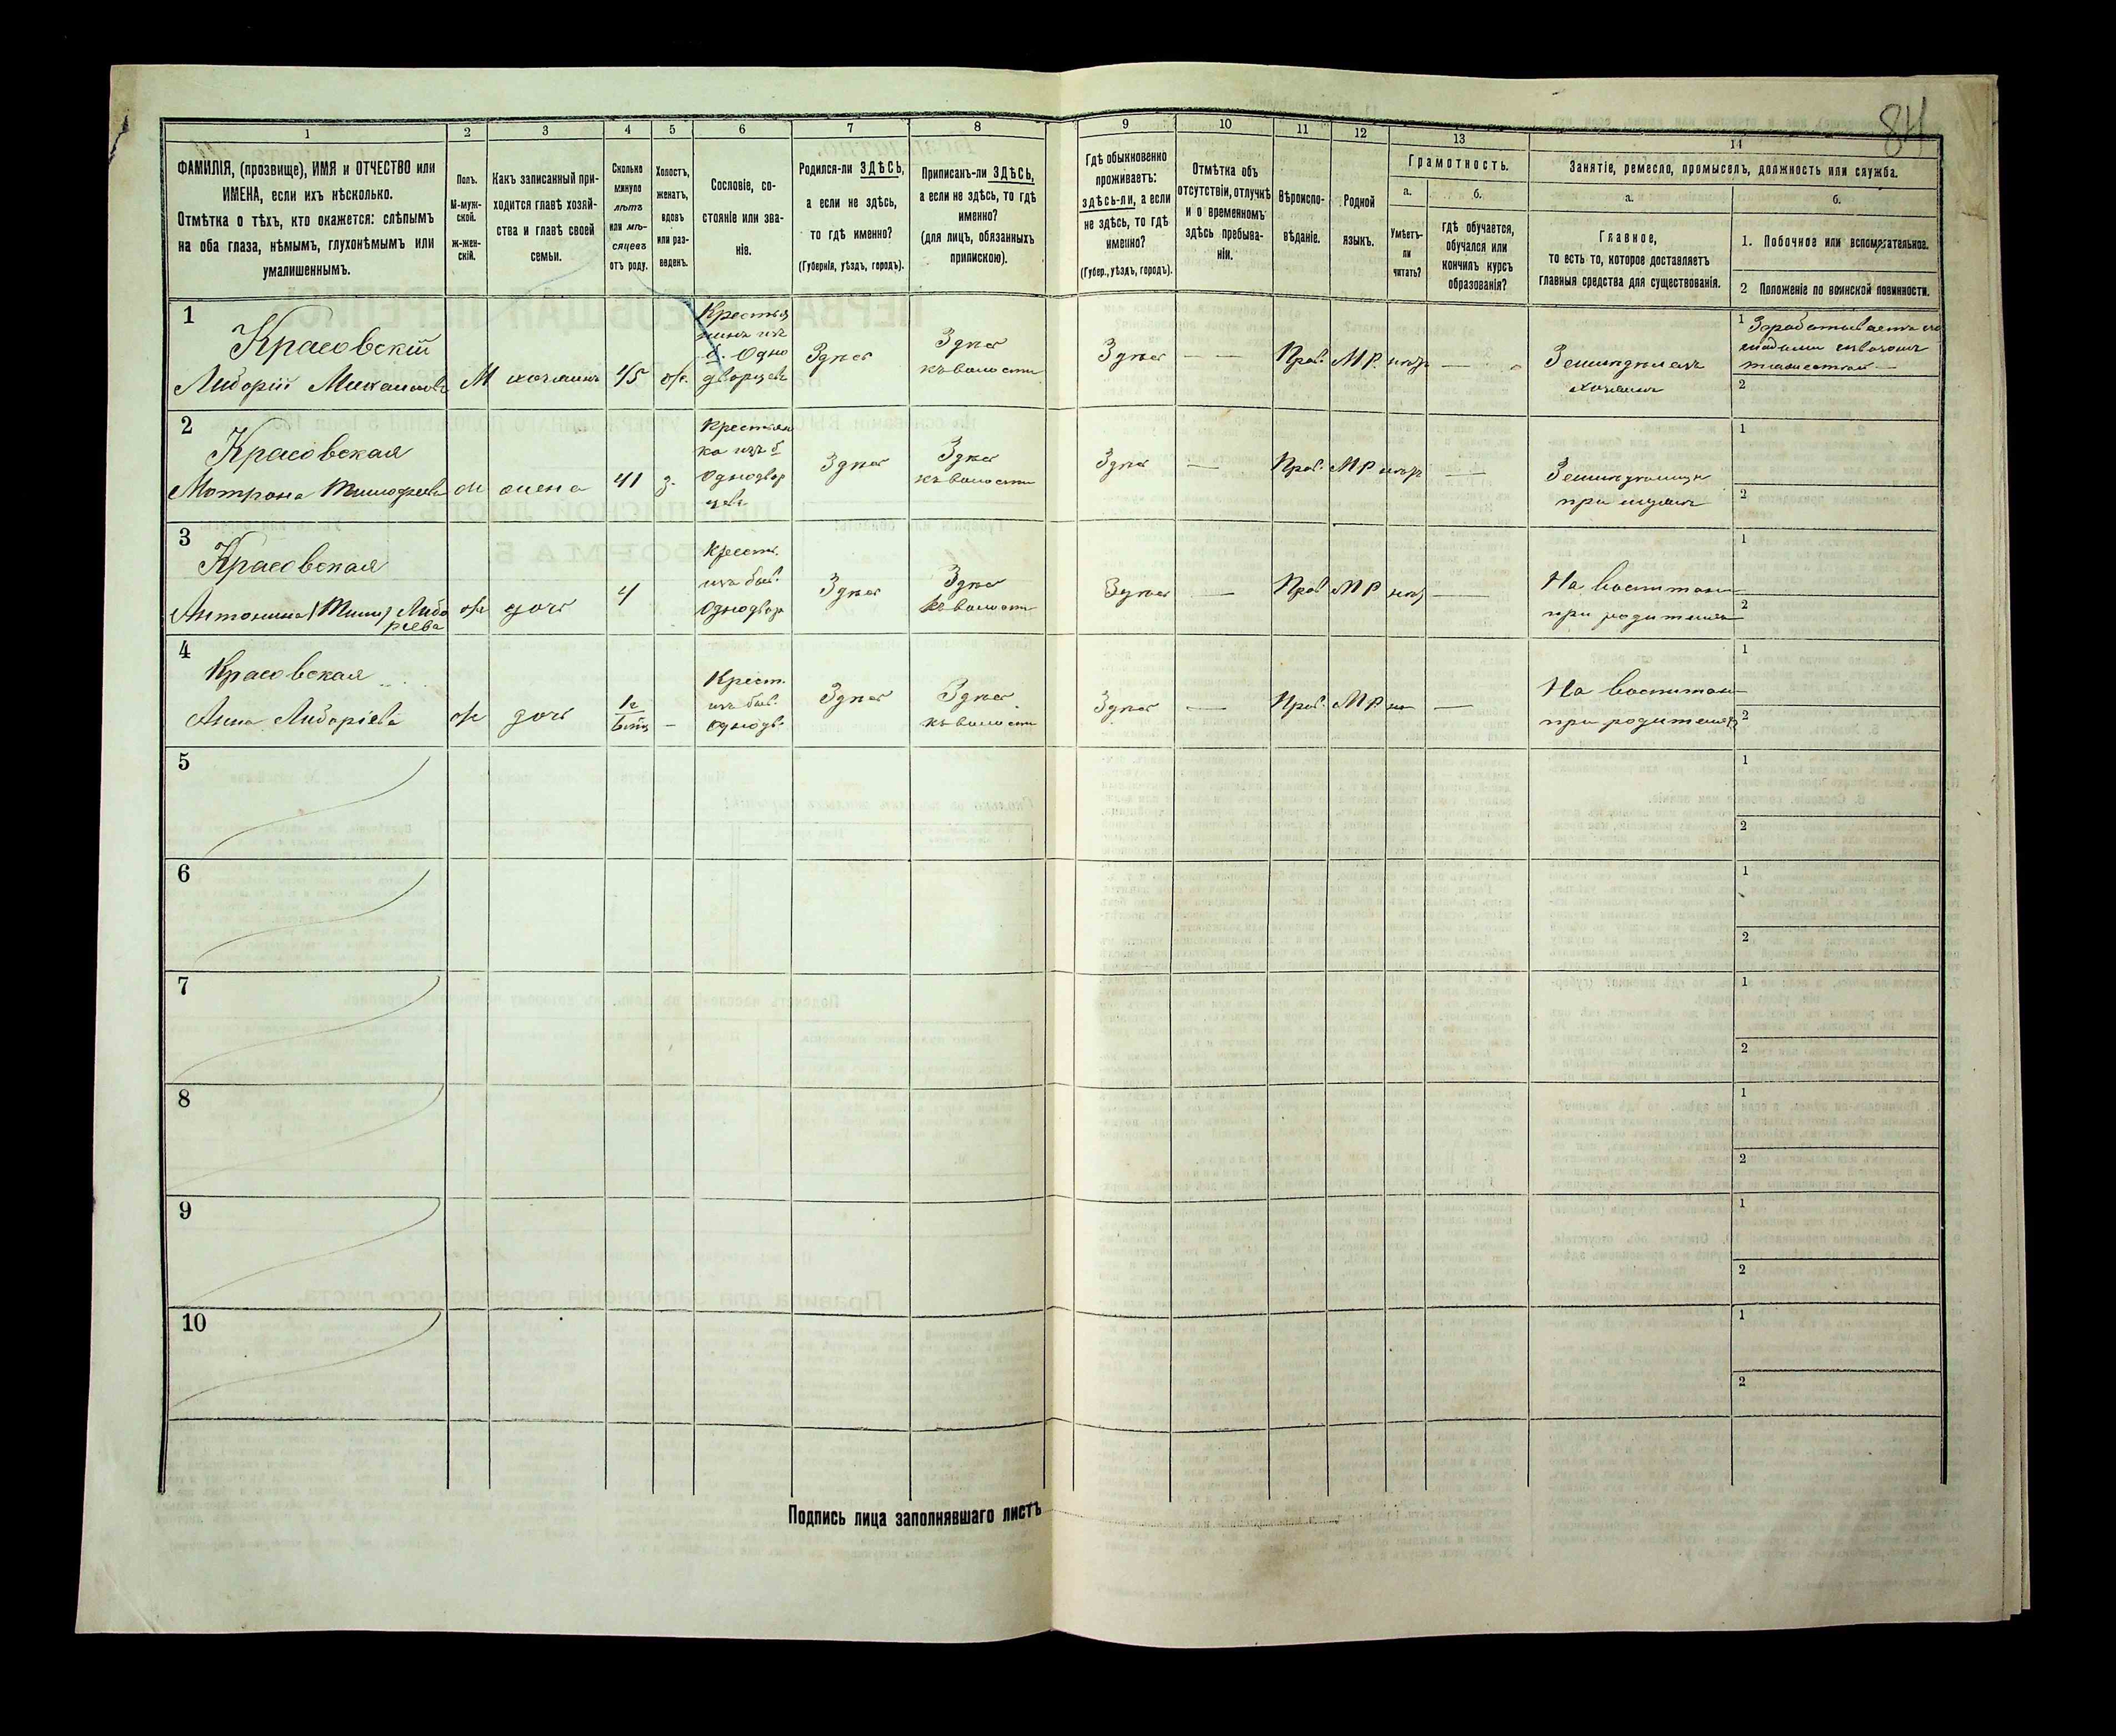 84
1
2
3
4
5
6
7
8
9
10
11
12
13
14
ФАМИЛІЯ, (прозвище), ИМЯ и ОТЧЕСТВО или
ИМЕНА, если ихъ нѣсколько.
Отмѣтка о тѣхъ, кто окажется: слѣпымъ
на оба глаза, нѣмымъ, глухонѣмымъ или
умалишеннымъ.
Полъ.
М-муж-
ской.
ж-жен-
скій.
Какъ записанный при-
ходится главѣ хозяй-
ства и главѣ своей
семьи.
Сколько
минуло
лѣтъ
или мѣ-
сяцевъ
отъ роду.
Холостъ,
женатъ,
вдовъ
или раз-
веденъ.
Сословіе, со-
стояніе или зва-
ніе.
Родился-ли ЗДѢСЬ,
а если не здѣсь,
то гдѣ именно?
(Губернія, уѣздъ, городъ).
Приписанъ-ли ЗДѢСЬ,
а если не здѣсь, то гдѣ
именно?
(для лицъ, обязанныхъ
припискою).
Гдѣ обыкновенно
проживаетъ:
здѣсь-ли, а если
не здѣсь, то гдѣ
именно?
(Губер., уѣздъ, городъ).
Отмѣтка объ
отсутствіи, отлучкѣ
и о временномъ
здѣсь пребыва-
ніи.
Вѣроиспо-
вѣданіе.
Родной
языкъ.
Грамотность.
а.
б.
Умѣетъ-
ли
читать?
гдѣ обучается,
обучался или
кончилъ курсъ
образованія?
Занятіе, ремесло, промыселъ, должность или служба.
а.
б.
Главное,
то есть то, которое доставляетъ
главныя средства для существованія.
1. Побочное или вспомогательное.
2 Положеніе по воинской повинности.
1
Красовскій
Либорій Михаиловъ
М
хозяинъ
45
ж.
Крестья
нинъ изъ
б. Одно
дворцевъ
Здѣсь
Здѣсь
къ волости
Здѣсь
— —
Прав.
МР.
—
Земледѣлецъ
хозяинъ
1
2
2
Красовская
Мотрона Тимофеева
ж
жена
41
з.
Крестьян
ка изъ б
Однодвор
цевъ
Здѣсь
Здѣсь
къ волости
Здѣсь
—
Прав.
МР
—
при мужѣ
1
2
3
Красовская
Либо
рiева
ж
дочь
4
Крест.
изъ быв.
Однодвор
Здѣсь
Здѣсь
къ волости
Здѣсь
—
Прав
МР
—
На воспитан
при родителях
1
2
4
Красовская
Анна Либоріева
ж
дочь
—
Крест.
изъ быв.
Однодв.
Здѣсь
Здѣсь
къ волости
Здѣсь
—
Прав.
МР
—
На воспитан
при родителях
1
2
5
1
2
6
1
2
7
1
2
8
1
2
9
1
2
10
1
2
Подпись лица заполнявшаго листъ